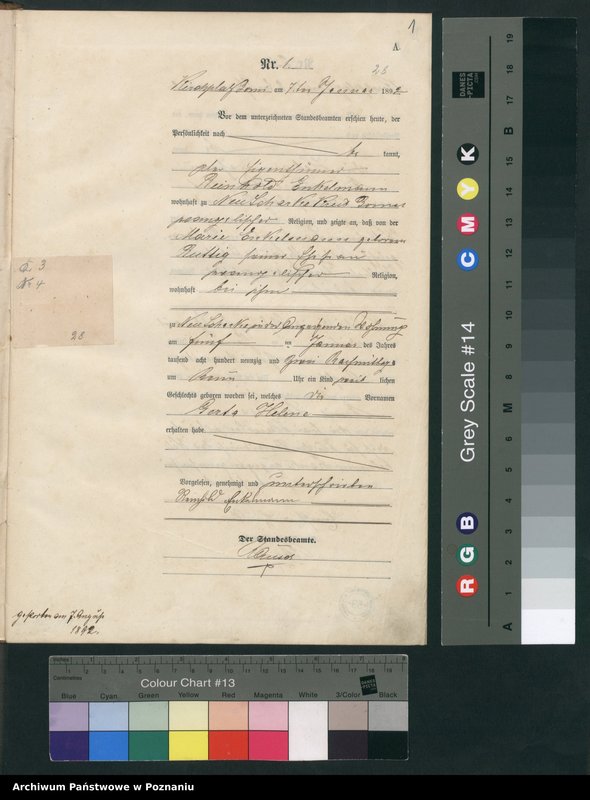 1
A.
Nr. 1.
28
am 7ten Januar 1892
Vor dem unterzeichneten Standesbeamten erschien heute, der
Persönlichkeit nach
be kannt,
der Eigenthümer
Reinhold Enkelmann
wohnhaft zu Neu
evangelischer Religion, und zeigte an, daß von der
Marie Enkelmann geborene
Ruttig seine Ehefrau
evangelischer Religion,
wohnhaft bei ihm
zu Neu in der Wohnung
am fünf ten Januar des Jahres
tausend acht hundert neunzig und zwei Nachmittags
um neun Uhr ein Kind weib lichen
Geschlechts geboren worden sei, welches die Vornamen
Gerta Helene
erhalten habe.
Vorgelesen, genehmigt und unterschrieben
Reinhold Enkelmann
Der Standesbeamte.
3
№ 4
28
Gestorben am 7.
1892.
Grey Scale #14
R G B C M Y K
A 1 2 3 4 5 6 M 8 9 10 11 12 13 14 15 B 17 18 19
DANES
PICTA
.COM
Inches
Centimetres
Colour Chart #13
DANES
PICTA
.COM
Blue Cyan Green Yellow Red Magenta White 3/Color Black
Archiwum Państwowe w Poznaniu